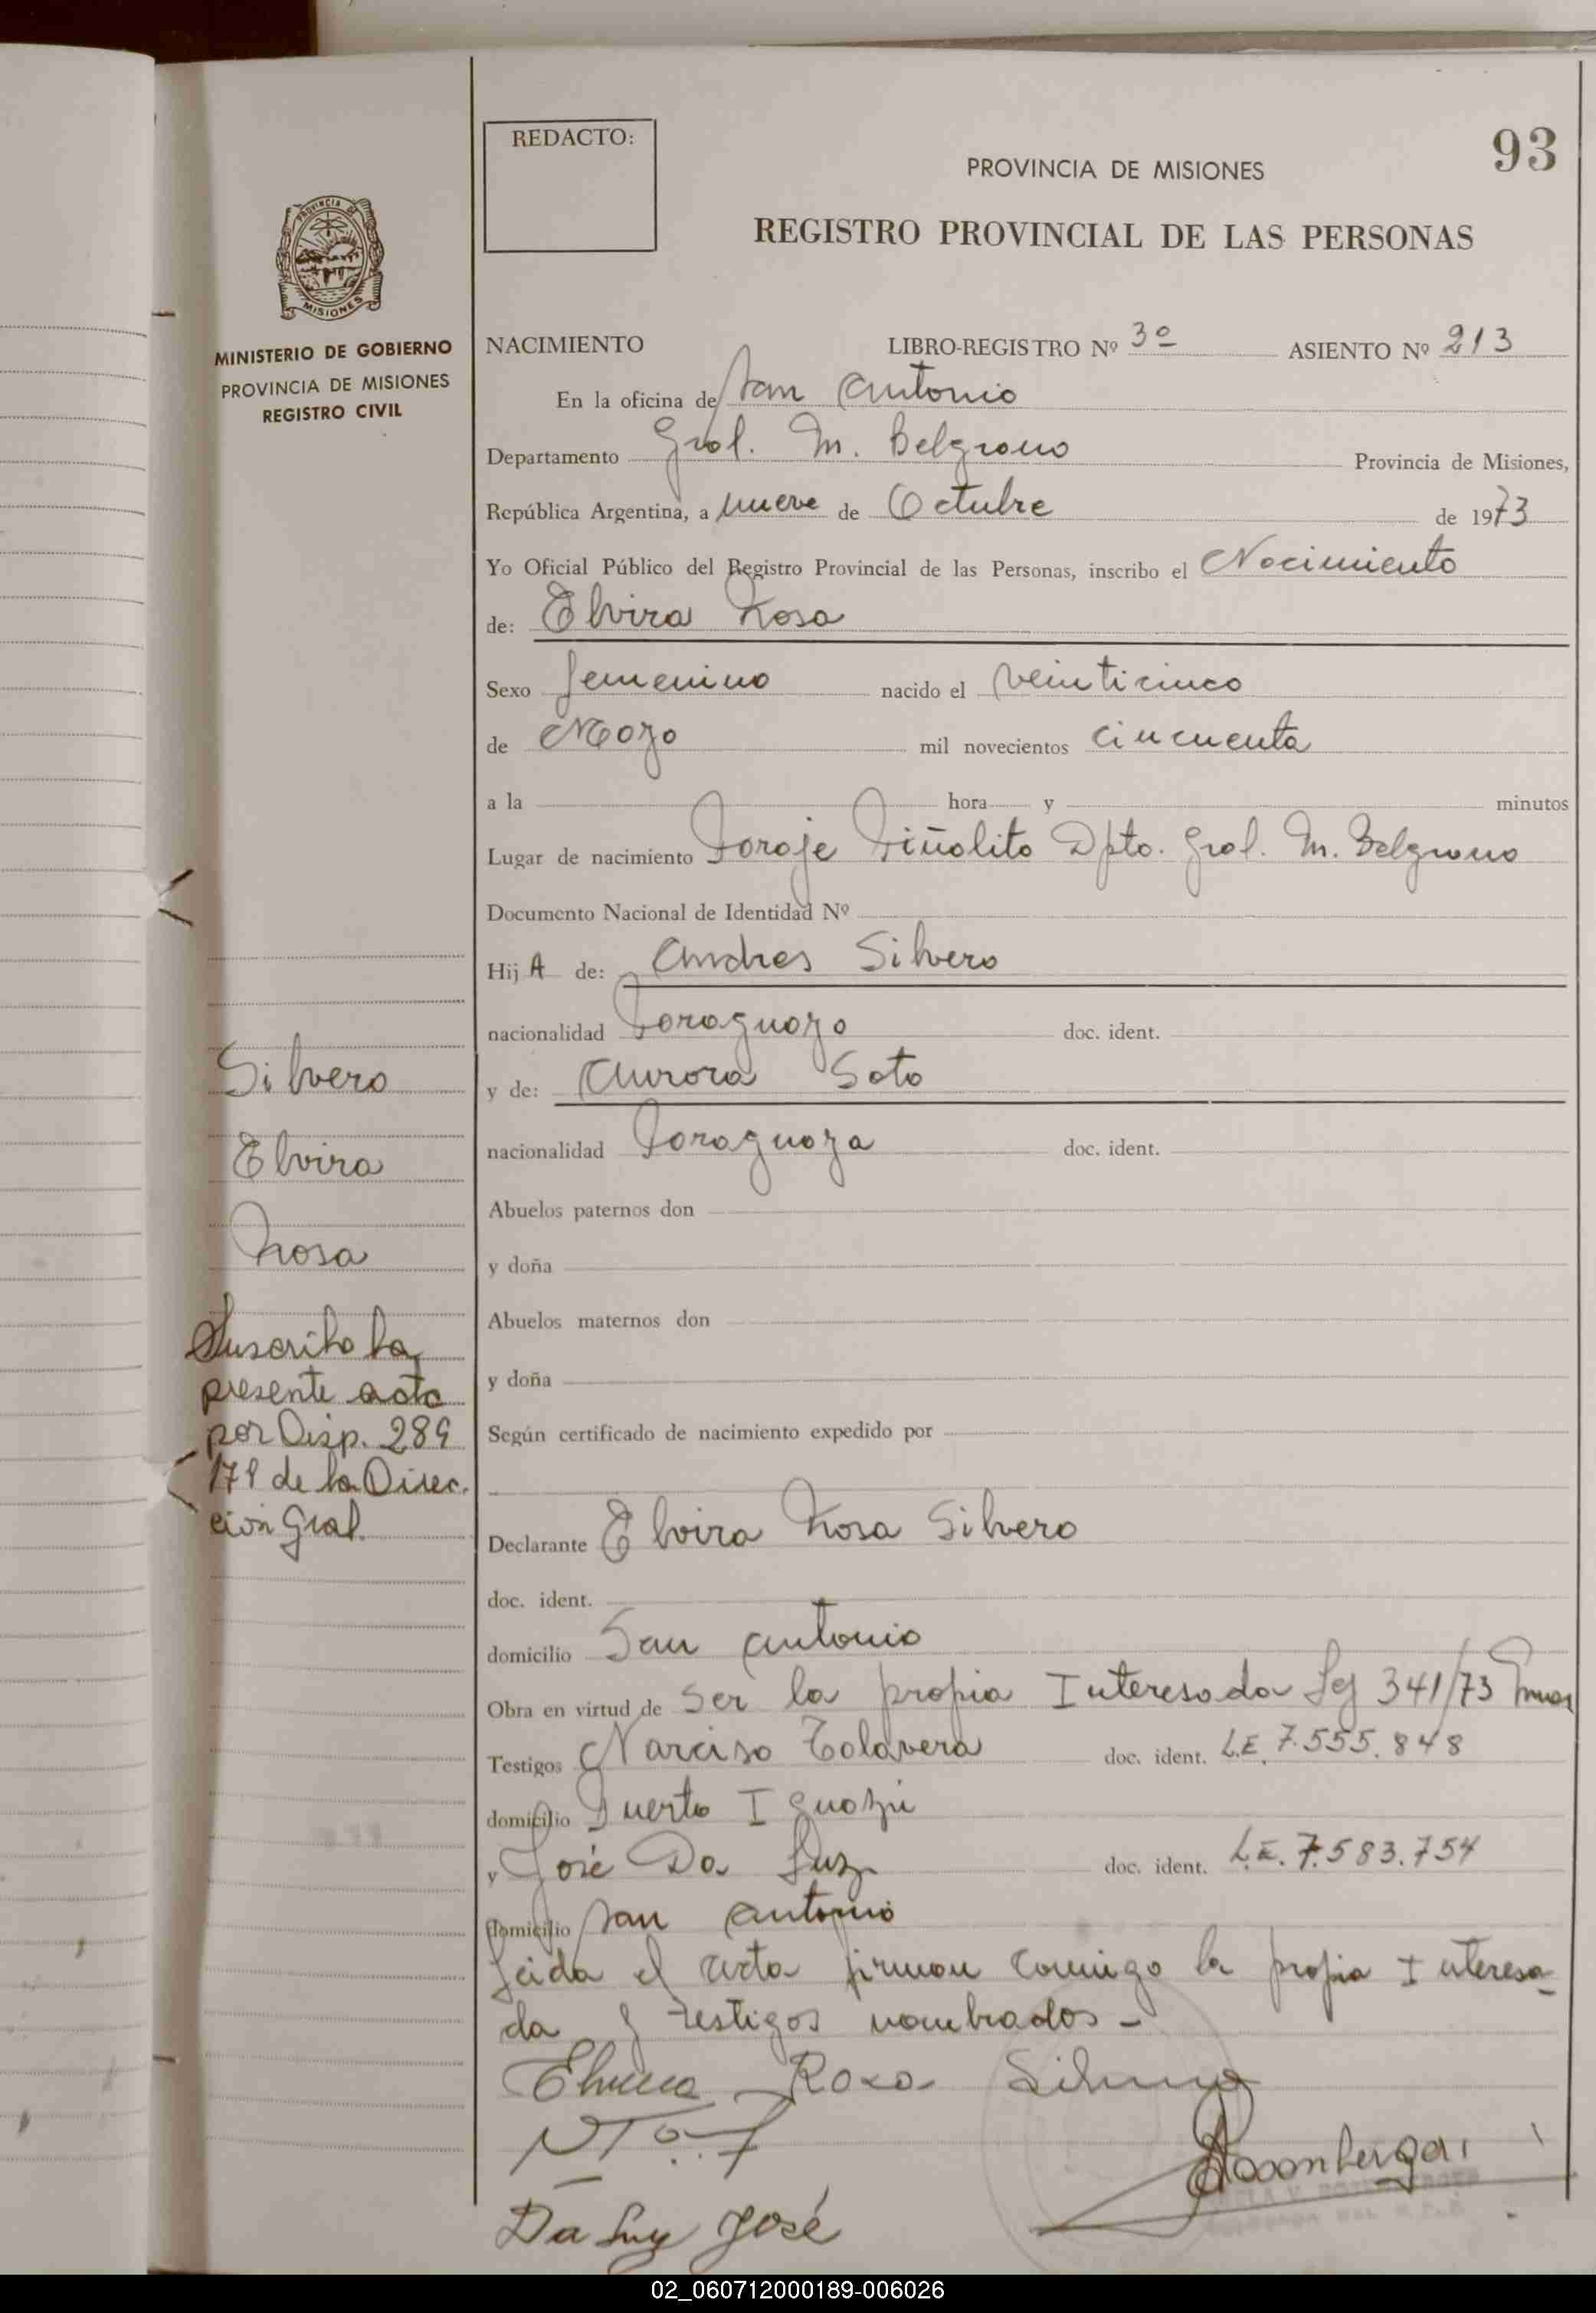 REDACTO:
93
PROVINCIA DE MISIONES
REGISTRO PROVINCIAL DE LAS PERSONAS
PROVINCIA DE
MISIONES
MINISTERIO DE GOBIERNO
PROVINCIA DE MISIONES
REGISTRO CIVIL
NACIMIENTO LIBRO-REGISTRO Nº 3º ASIENTO Nº 213
En la oficina de San Antonio
Departamento Gral. M. Belgrano Provincia de Misiones,
República Argentina, a nueve de Octubre de 1973
Yo Oficial Público del Registro Provincial de las Personas, inscribo el Nacimiento
de: Elvira Rosa
Sexo femenino nacido el veinticinco
de Mayo mil novecientos cincuenta
a la hora y minutos
Lugar de nacimiento Paraje Piñalito Dpto. Gral. M. Belgrano
Documento Nacional de Identidad Nº
Hij A de: Andres Silvero
nacionalidad Paraguayo doc. ident.
y de: Aurora Soto
nacionalidad Paraguaya doc. ident.
Abuelos paternos don
y doña
Abuelos maternos don
y doña
Según certificado de nacimiento expedido por
Declarante Elvira Rosa Silvero
doc. ident.
domicilio San Antonio
Obra en virtud de Ser la propia Interesada Ley 341/73
Testigos Narciso Talavera doc. ident. L.E. 7.555.848
domicilio Puerto Iguazú
y José Da Luz doc. ident. L.E. 7.583.754
domicilio San Antonio
Leida el acta firman conmigo la propia Interesa
da y testigos nombrados -
Elvira Rosa Silvero
Da Luz José
Silvero
Elvira
Rosa
Suscrito la
presente acta
por Disp. 289
de la Direc.
ción Gral.
02_060712000189-006026